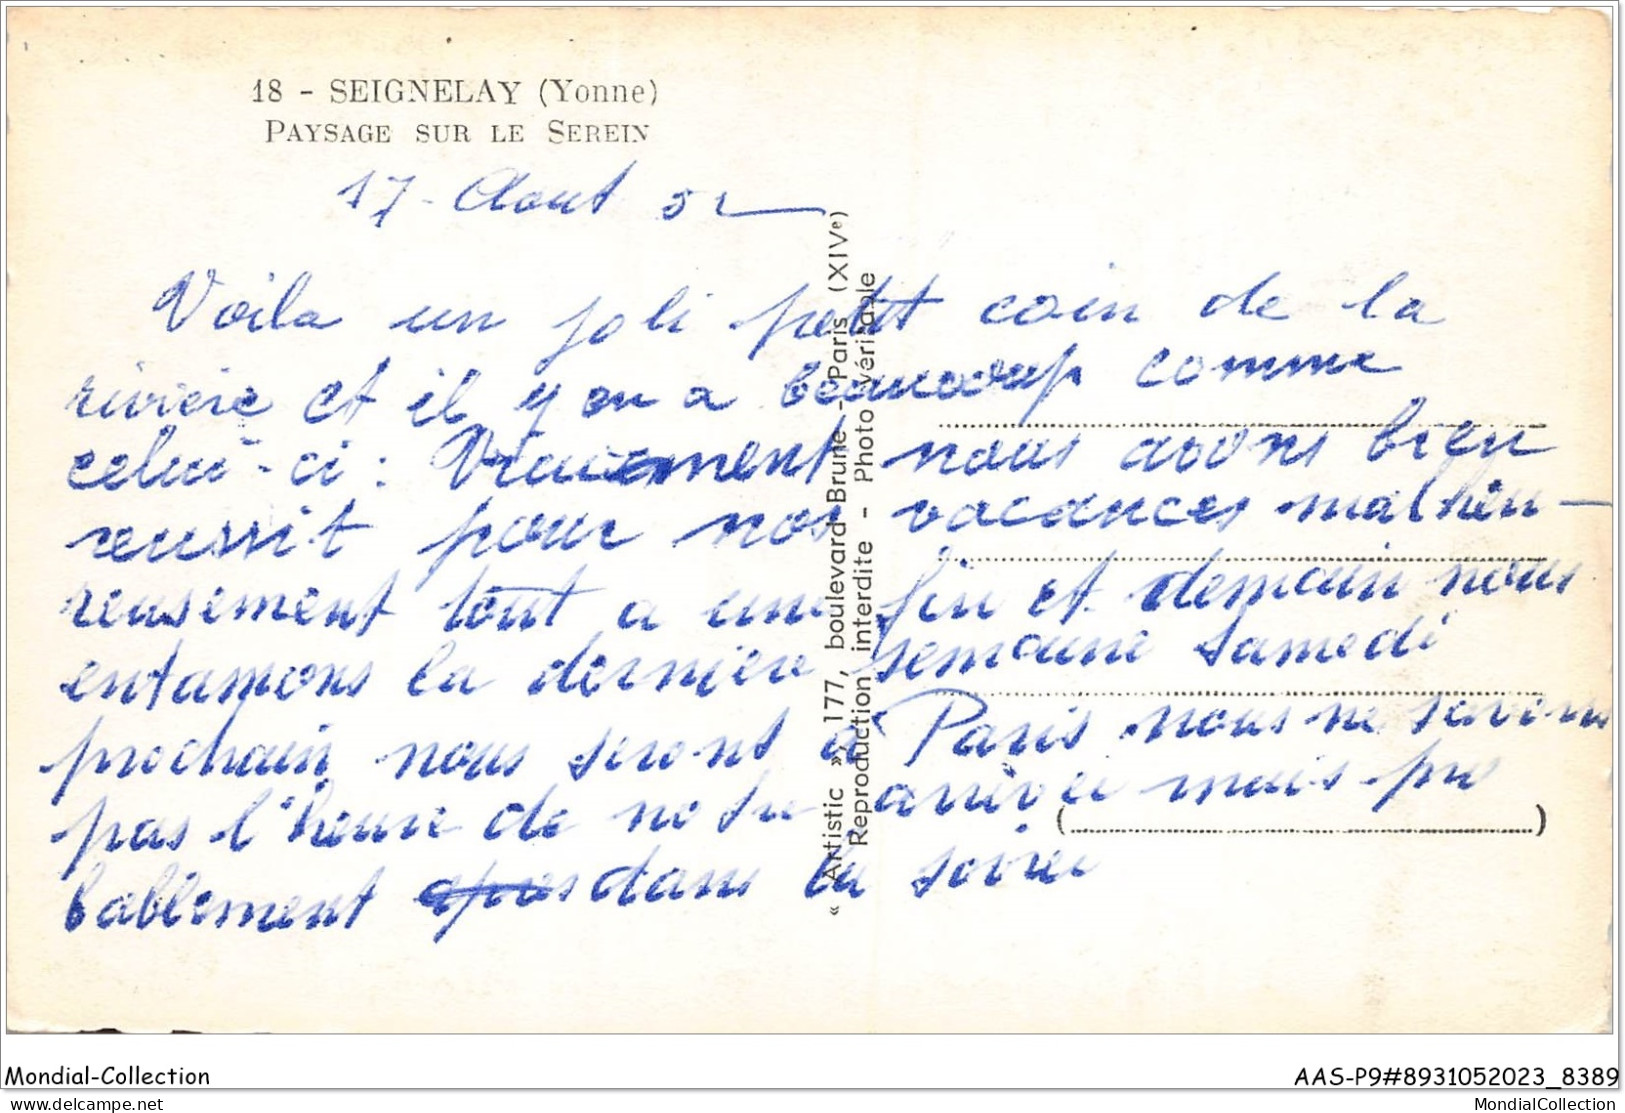 18 - SEIGNELAY (Yonne)
PAYSAGE SUR LE SEREIN
17 - Aout 52
Voila un joli petit coin de la
rivière et il y en a beaucoup comme
celui-ci : Vraiement nous avons bien
reussit pour nos vacances malheu-
reusement tout a une fin et demain nous
entamons la dernière semaine samedi
prochain nous seront à Paris nous ne savons
pas l'heure de notre arrivée mais pro
bablement apres dans la soirée
« Artistic » 177, boulevard Brune - Paris (XIVe)
Reproduction interdite - Photo véritable
( )
Mondial-Collection
AAS-P9#8931052023_8389
delcampe.net
MondialCollection